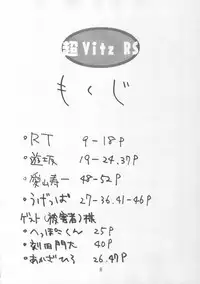 超Vitz RS
もくじ
・RT 9-18P
・遊坂 19-24.37P
・柴山寿一 48-52P
・うげっぱ 27-36.41-46P
ゲスト(被害者)様
・へっぽこくん 25P
・刻田門大 40P
・あかざひろ 26.47P